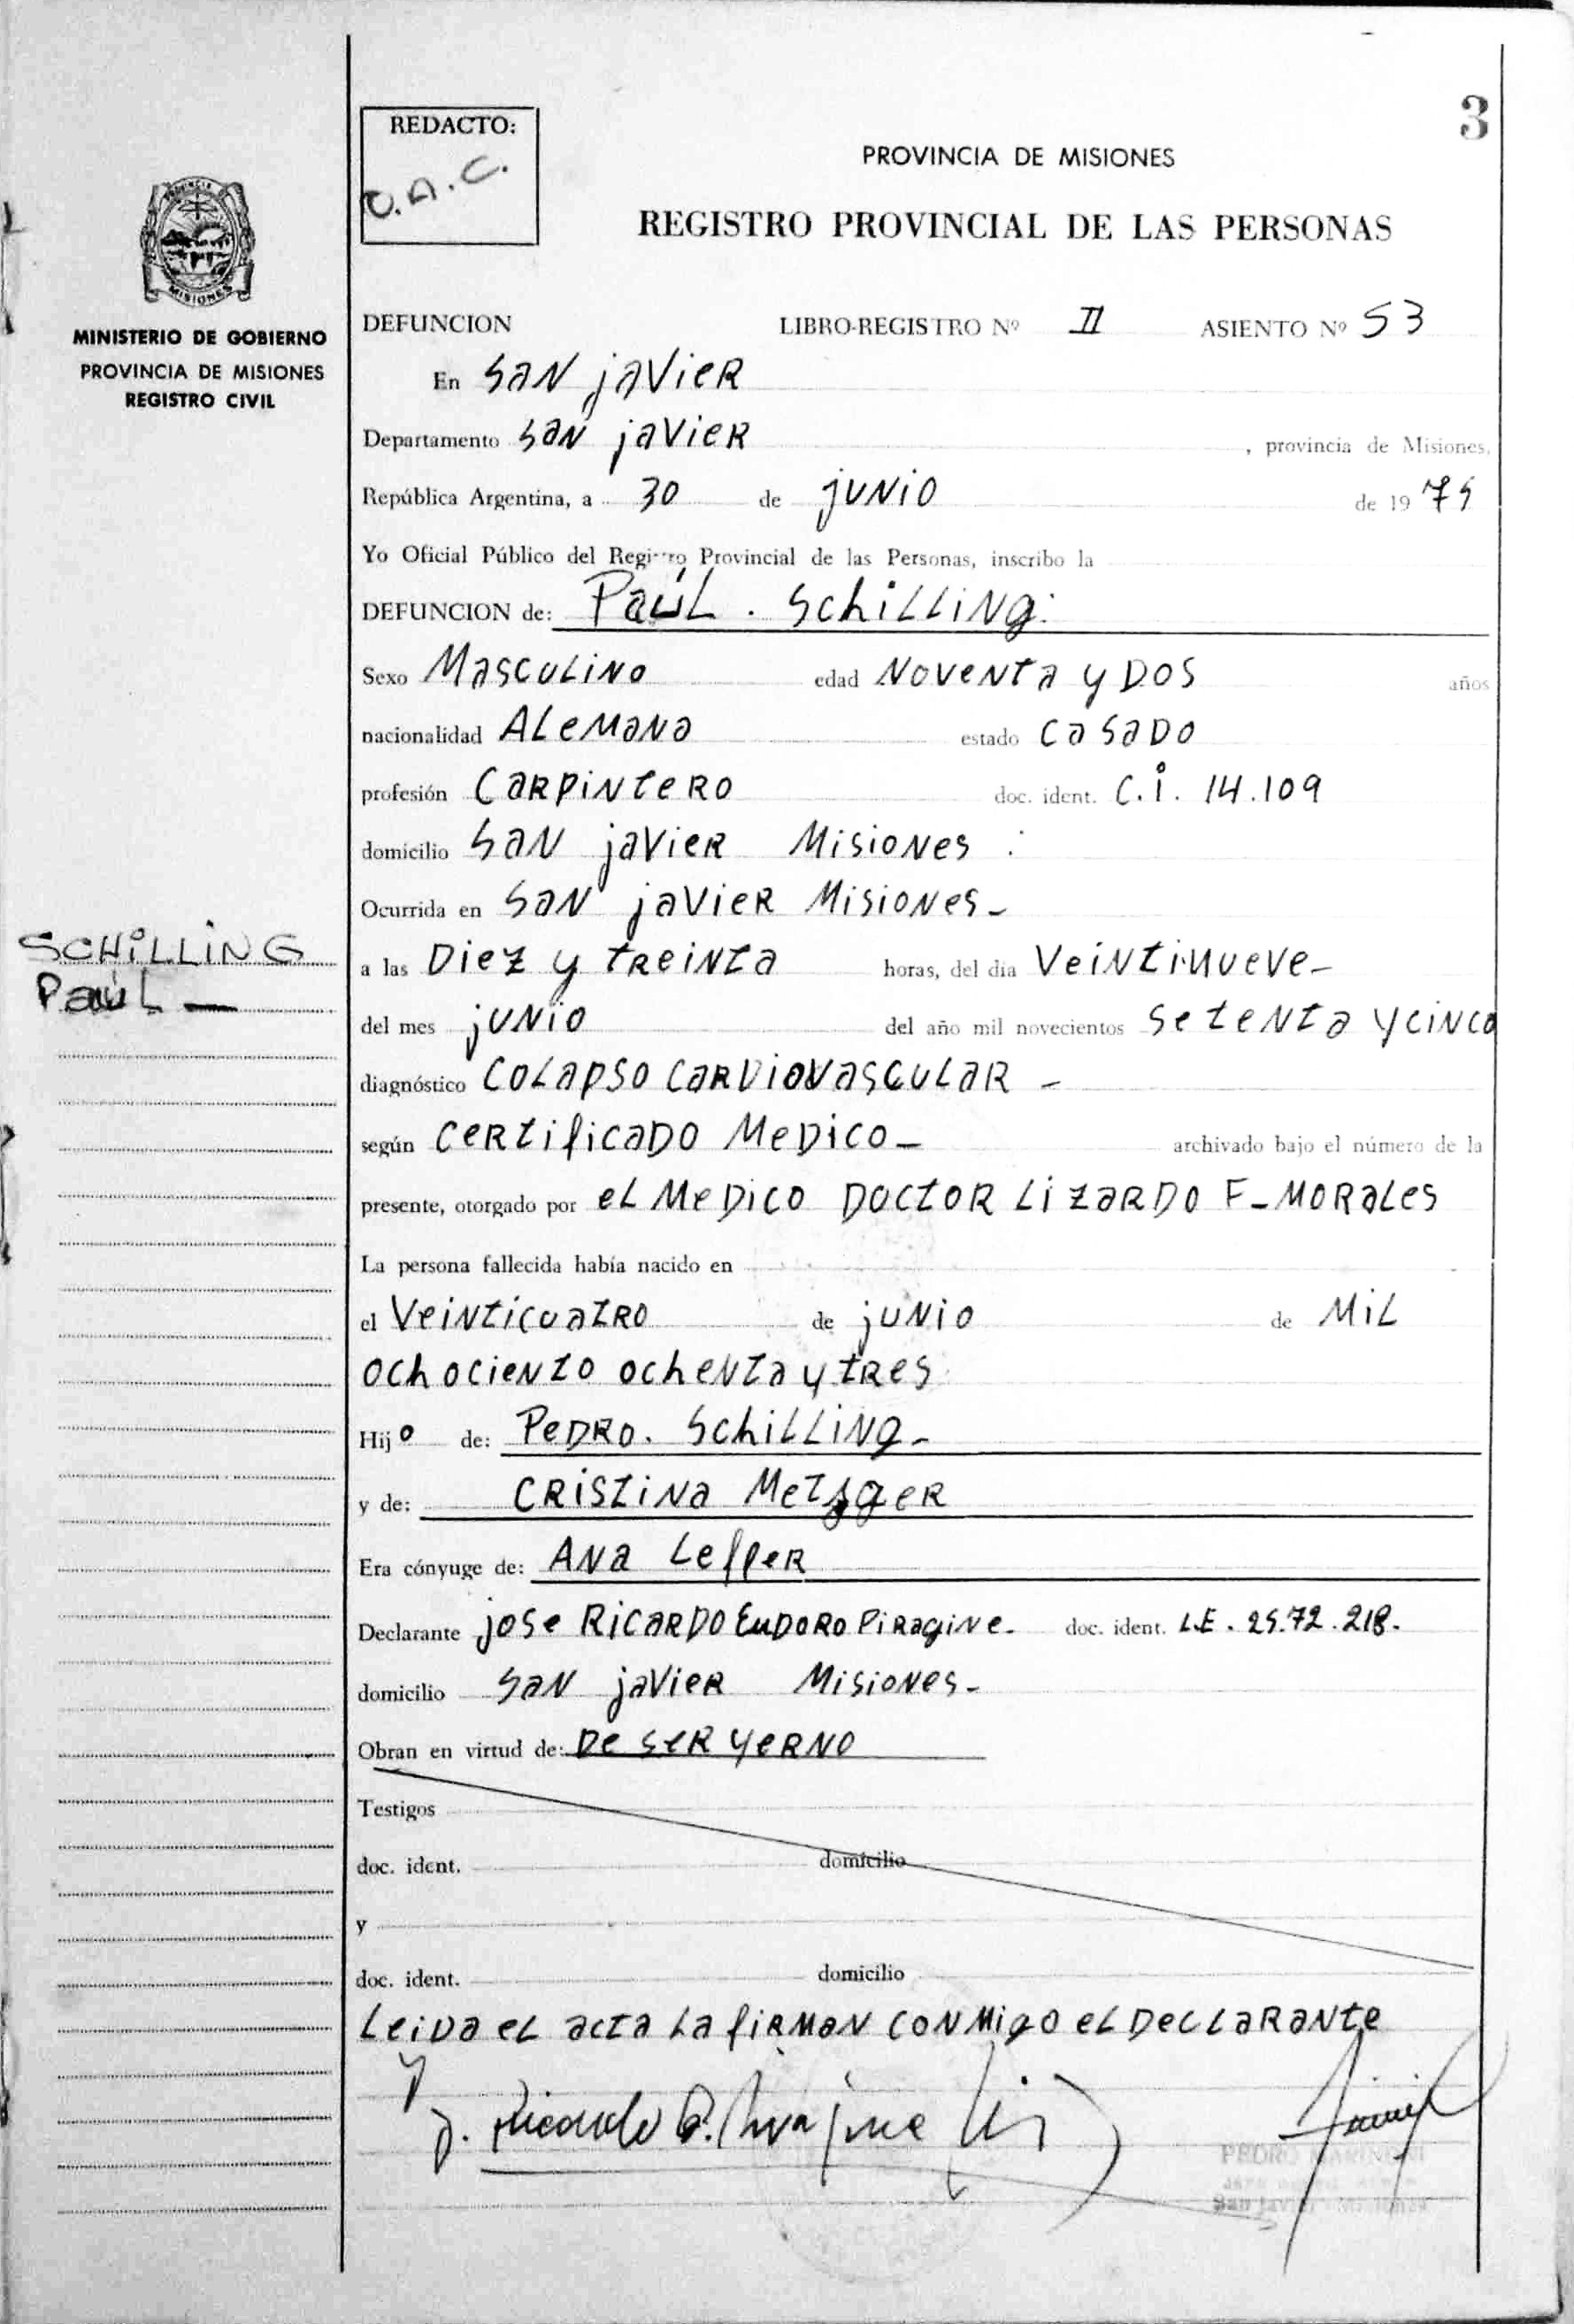 3
REDACTO:
O.A.C.
PROVINCIA DE MISIONES
REGISTRO PROVINCIAL DE LAS PERSONAS
MISIONES
MINISTERIO DE GOBIERNO
PROVINCIA DE MISIONES
REGISTRO CIVIL
DEFUNCION LIBRO-REGISTRO Nº II ASIENTO Nº 53
En SAN javieR
Departamento SaN javieR , provincia de Misiones,
República Argentina, a 30 de jUNiO de 1975
Yo Oficial Público del Registro Provincial de las Personas, inscribo la
DEFUNCION de: PaúL . SchiLLiNg.
Sexo MasculiNo edad NoveNta y Dos años
nacionalidad ALeMaNa estado CasaDo
profesión CaRpiNteRo doc. ident. C.i. 14.109
domicilio SaN javieR MisioNes .
Ocurrida en SaN javieR MisioNes -
a las Diez y tReiNta horas, del día VeiNtiNueve -
del mes jUNio del año mil novecientos SeteNta y ciNco
diagnóstico CoLapso caRDiovascuLaR -
según CeRtificaDo MeDico - archivado bajo el número de la
presente, otorgado por eL MeDico DoctoR LizaRDo F - MoRaLes
La persona fallecida había nacido en
el VeiNticuatRo de juNio de MiL
ochocieNto ocheNta y tRes
Hijo de: PeDRo. SchiLLiNg -
y de: CRistiNa MetzgeR
SCHiLLiNG
PaúL —
Era cónyuge de: ANa LeffeR
Declarante jose RicaRDo EuDoRo PiRagiNe - doc. ident. L.E. 25.72.218.
domicilio SaN javieR MisioNes -
Obran en virtud de: De seR yeRNo
Testigos
doc. ident. domicilio
y
doc. ident. domicilio
LeiDa eL acta La fiRMaN coNMigo eL DecLaRaNte
y